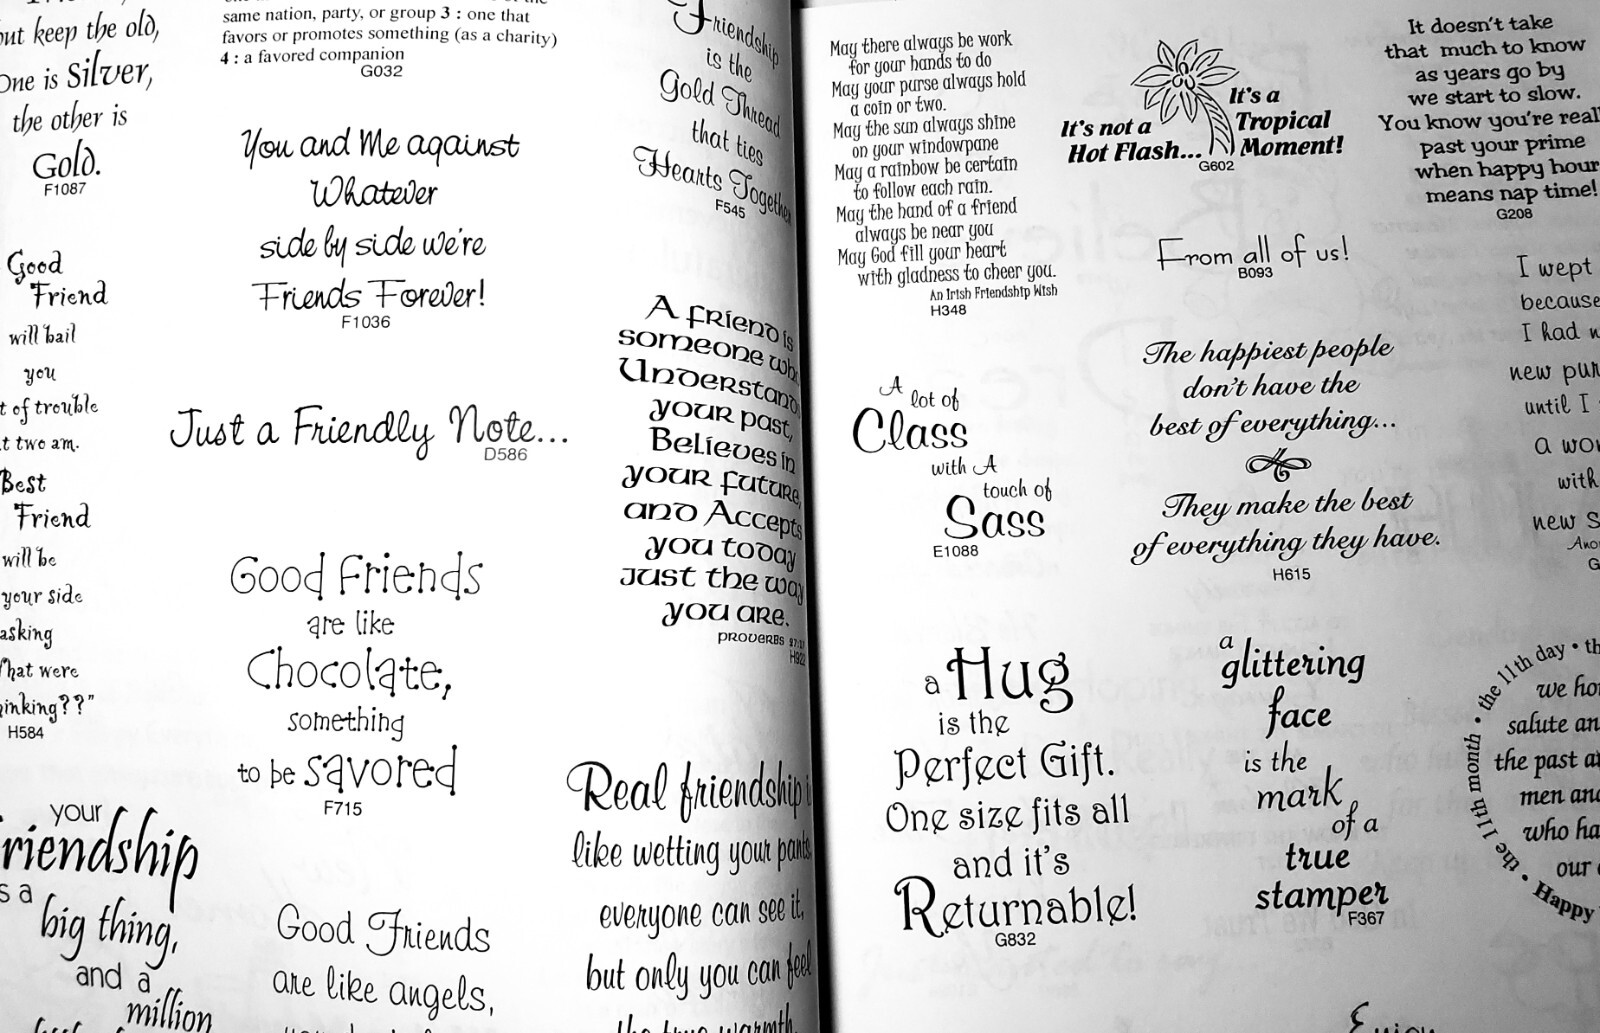 but keep the old,
One is Silver,
the other is
Gold.
F1087
Good
Friend
will bail
you
of trouble
two am.
Best
Friend
will be
your side
asking
What were
H584
your
s a
big thing,
and a
million
same nation, party, or group 3 : one that
favors or promotes something (as a charity)
4 : a favored companion
G032
You and Me against
Whatever
side by side we're
Friends Forever!
F1036
Just a Friendly Note...
D586
Good Friends
are like
Chocolate,
something
to be savored
F715
Good Friends
are like angels,
Friendship
is the
Gold Thread
that ties
Hearts Together
F545
A friend is
someone who
Understands
your past,
Believes in
your future,
and Accepts
you today
just the way
you are.
Proverbs
Real friendship
like wetting your pants,
everyone can see it,
but only you can feel
the true warmth.
May there always be work
for your hands to do
May your purse always hold
a coin or two.
May the sun always shine
on your windowpane
May a rainbow be certain
to follow each rain.
May the hand of a friend
always be near you
May God fill your heart
with gladness to cheer you.
An Irish Friendship Wish
H348
A
lot of
Class
with A
touch of
Sass
E1088
a Hug
is the
Perfect Gift.
One size fits all
and it's
Returnable!
G832
It's not a
Hot Flash...
It's a
Tropical
Moment!
G602
From all of us!
B093
The happiest people
don't have the
best of everything...
They make the best
of everything they have.
H615
a
glittering
face
is the
mark
of a
true
stamper
F367
It doesn't take
that much to know
as years go by
we start to slow.
You know you're
past your prime
when happy hour
means nap time!
G208
I wept
because
I had
new
until I
a
with
new
the 11th month • the 11th day •
we
salute
the past
men
who
our
• Happy
Enjoy